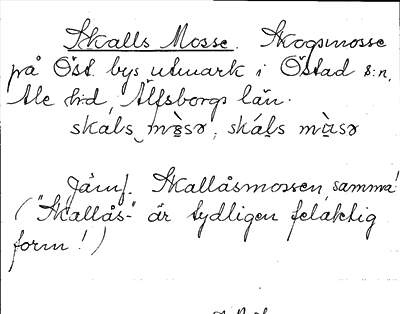 Skalls Mosse. Skogsmosse
på Öst. bys utmark i Östad s:n,
Ale hd, Älfsborgs län.
skáls mòsə, skáls mùsə
Jämf. Skallåsmossen, samma!
("Skallås-" är tydligen felaktig
form!)